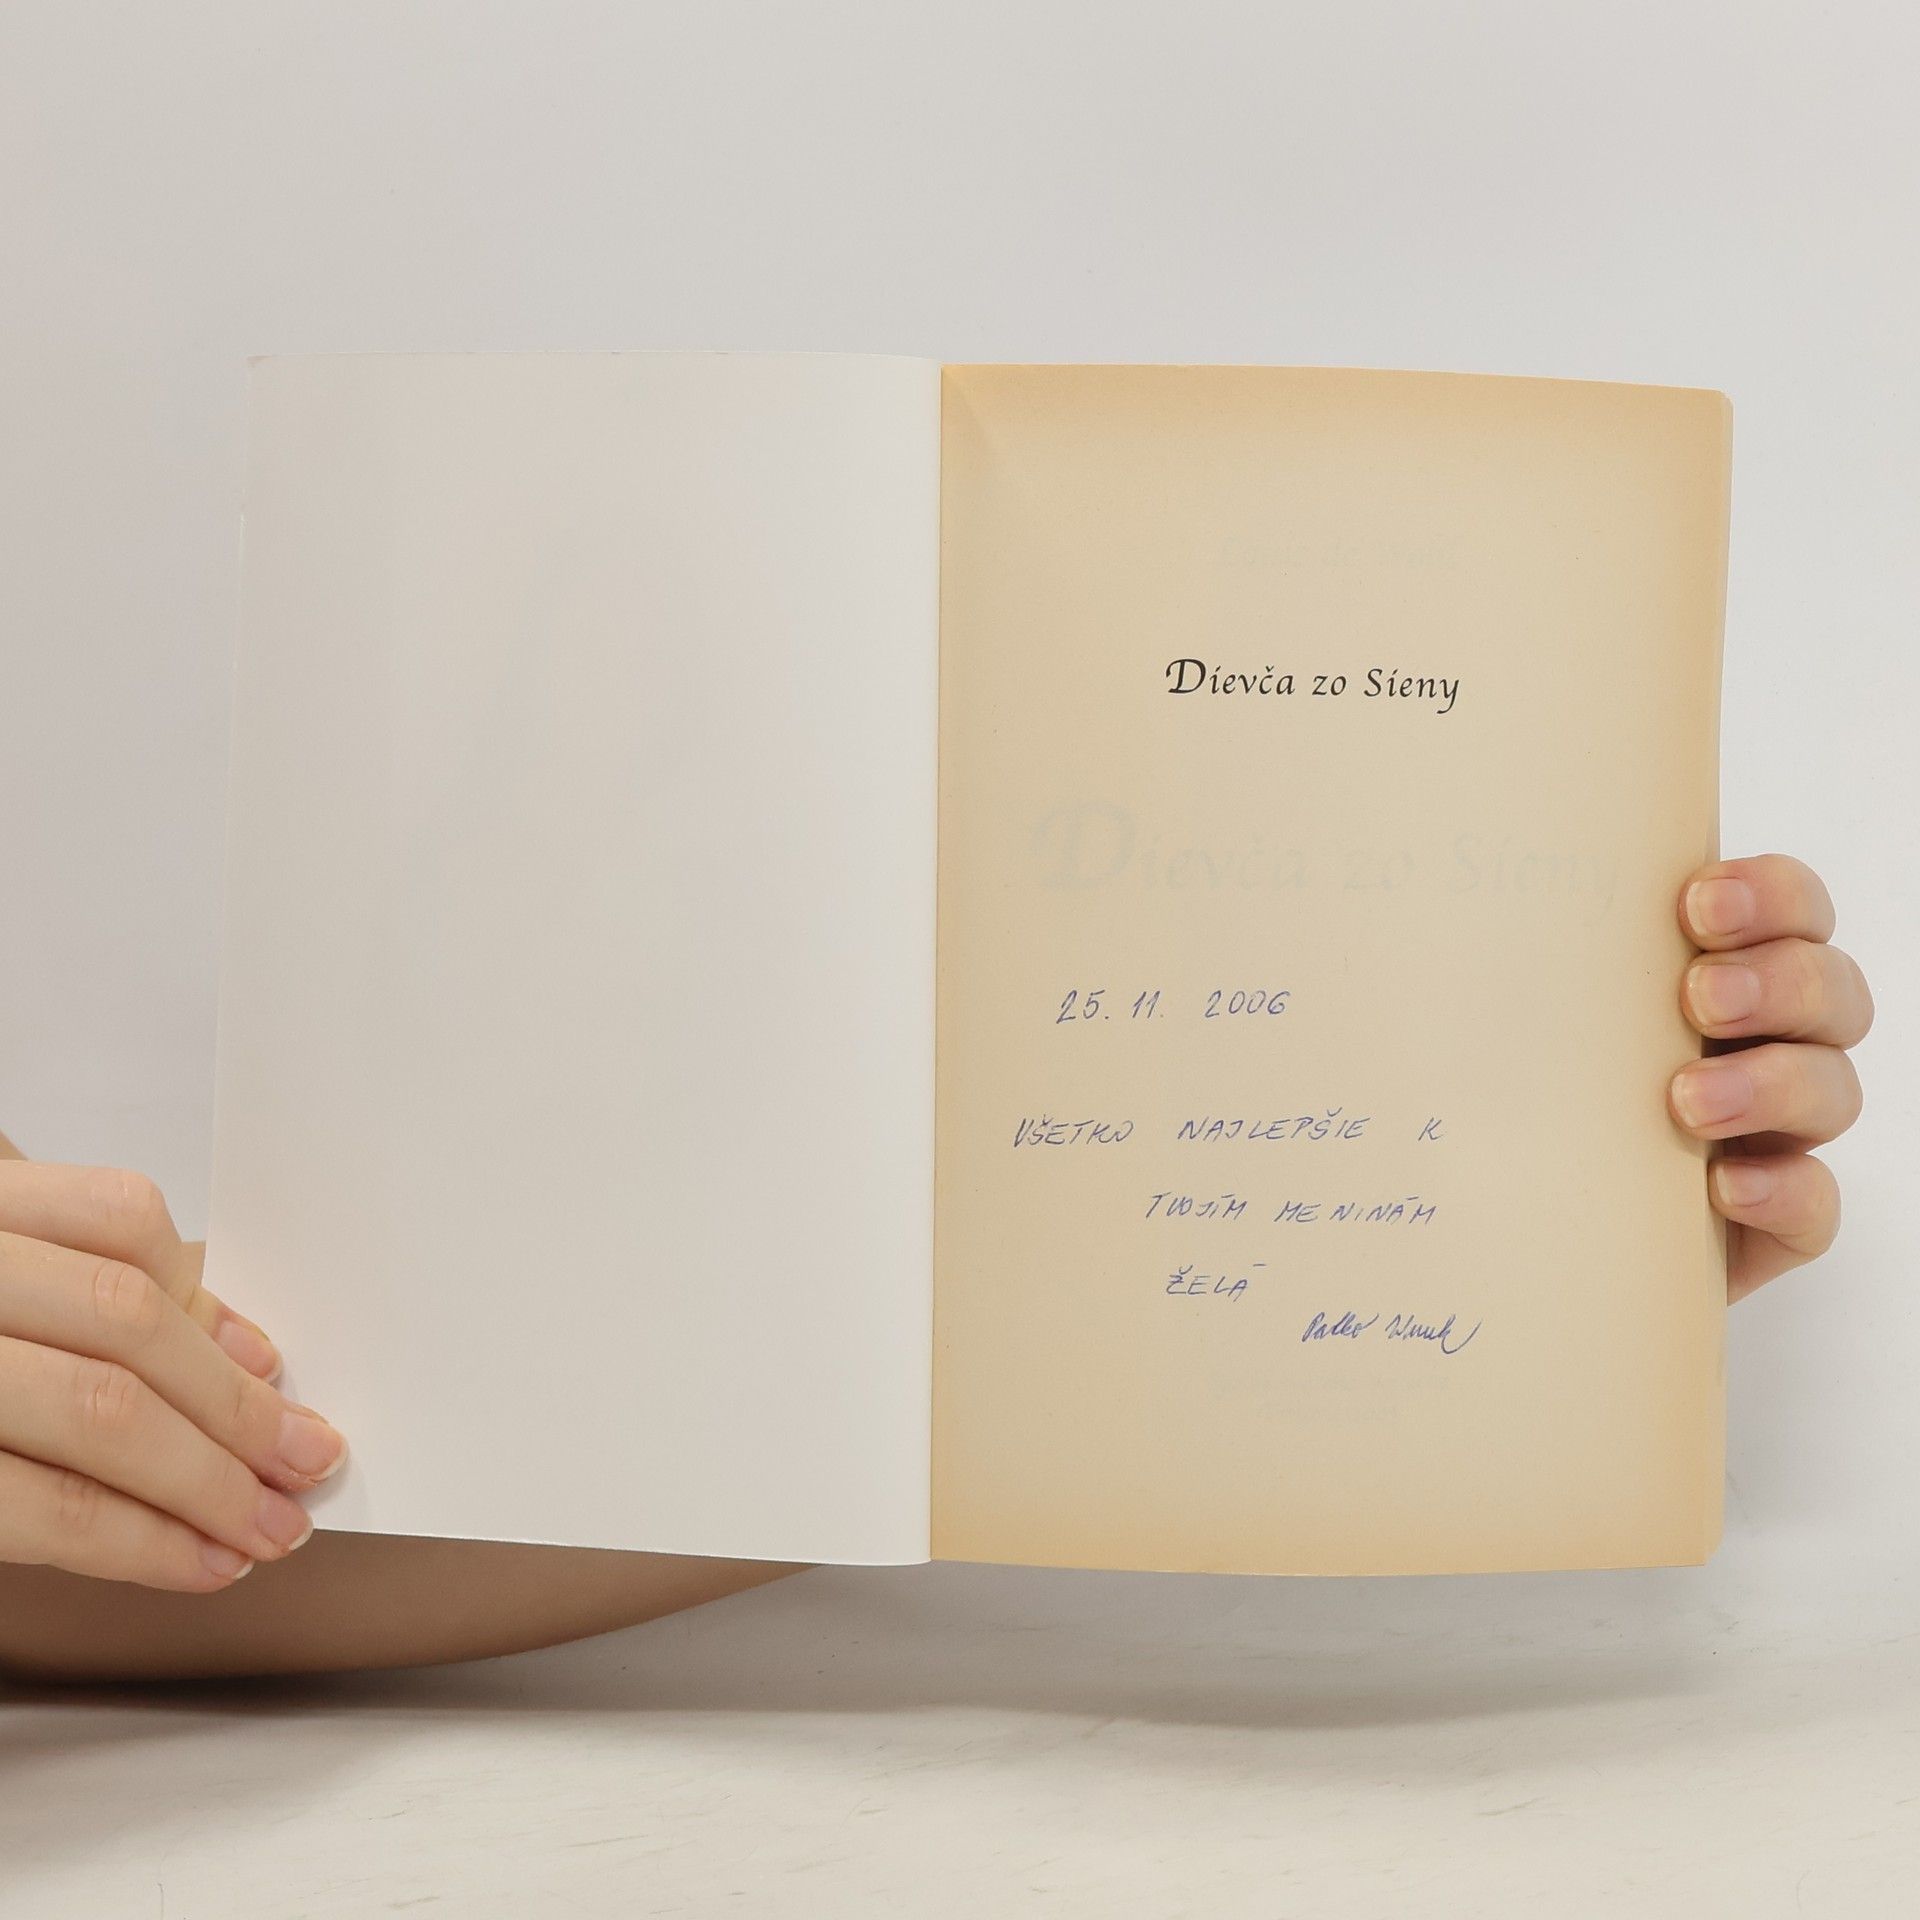 Dievča zo Sieny
Dievča zo Sieny
25. 11. 2006
VŠETKO NAJLEPŠIE K
TVOJÍM MENINÁM
ŽELÁ
Palko